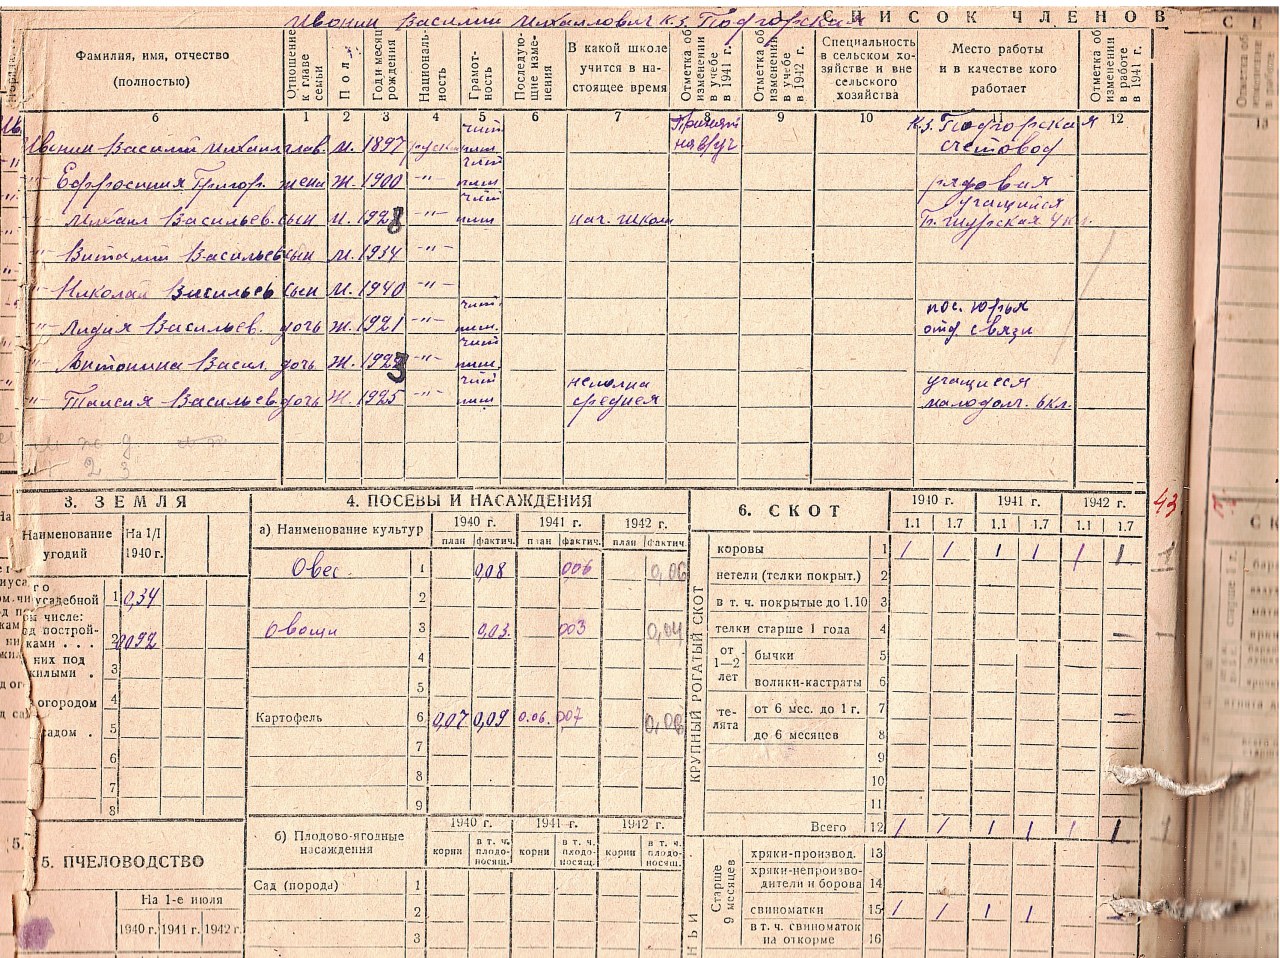 Ивонин Василий Михайлович к.з. Подгорская
1 СПИСОК ЧЛЕНОВ
Фамилия, имя, отчество
(полностью)
Отношение к главе семьи
Пол
Год и месяц рождения
Националь-ность
Грамот-ность
Последую-щие изме-нения
В какой школе
учится в на-
стоящее время
Отметка об изменении в учебе в 1941 г.
Отметка об изменении в учебе в 1942 г.
Специальность
в сельском хо-
зяйстве и вне
сельского
хозяйства
Место работы
и в качестве кого
работает
Отметка об изменении в работе в 1941 г.
б 1 2 3 4 5 6 7 8 9 10 11 12
Ивонин Василий Михаил глав. М. 1897 русск чит. пит. к.з. Подгорская счетовод
-"- Ефросиния Григор. жена Ж. 1900 -"- чит пит рядовая
-"- Михаил Васильев. сын М. 1928 -"- чит пит нач. школа учащийся 4 кл.
-"- Виталий Васильев сын М. 1934 -"-
-"- Николай Васильев сын М. 1940 -"-
-"- Лидия Васильев. дочь Ж. 1921 -"- чит. пит. пос. Юрья отд. связи
-"- Антонина Васил. дочь Ж. 1923 -"- чит пит.
-"- Таисия Васильев дочь Ж. 1925 -"- чит пит неполна средняя учащиеся 6 кл.
м ж д
2 3
3. ЗЕМЛЯ
Наименование
угодий
На 1/I
1940 г.
усадебной 1 0,34
м числе:
од построй-
ками . . . 2 0092
них под
жилыми . 3
4
огородом
5
садом .
6
7
8
5. ПЧЕЛОВОДСТВО
На 1-е июля
1940 г. 1941 г. 1942 г.
4. ПОСЕВЫ И НАСАЖДЕНИЯ
а) Наименование культур 1940 г. 1941 г. 1942 г.
план фактич. план фактич. план фактич.
Овес 1 0,08 0,06 0,06
2
Овощи 3 0,03 003 0,04
4
5
Картофель 6 0,07 0,09 0.06. 007 0,08
7
8
9
б) Плодово-ягодные
насаждения
1940 г. 1941 г. 1942 г.
корни в т. ч. плодо-носящ. корни в т. ч. плодо-носящ. корни в т. ч. плодо-носящ.
Сад (порода) 1
2
3
6. СКОТ
1940 г. 1941 г. 1942 г.
1.1 1.7 1.1 1.7 1.1 1.7
43
КРУПНЫЙ РОГАТЫЙ СКОТ
коровы 1 1 1 1 1 1 1
нетели (телки покрыт.) 2
в т. ч. покрытые до 1.10 3
телки старше 1 года 4
от 1—2 лет
бычки 5
волики-кастраты 6
те-лята
от 6 мес. до 1 г. 7 —
до 6 месяцев 8
9
10
11
Всего 12 1 1 1 1 1 1
Старше 9 месяцев
хряки-производ. 13
хряки-непроизво-
дители и борова 14
свиноматки 15 1 1 1 1 —
в т. ч. свиноматок
на откорме 16